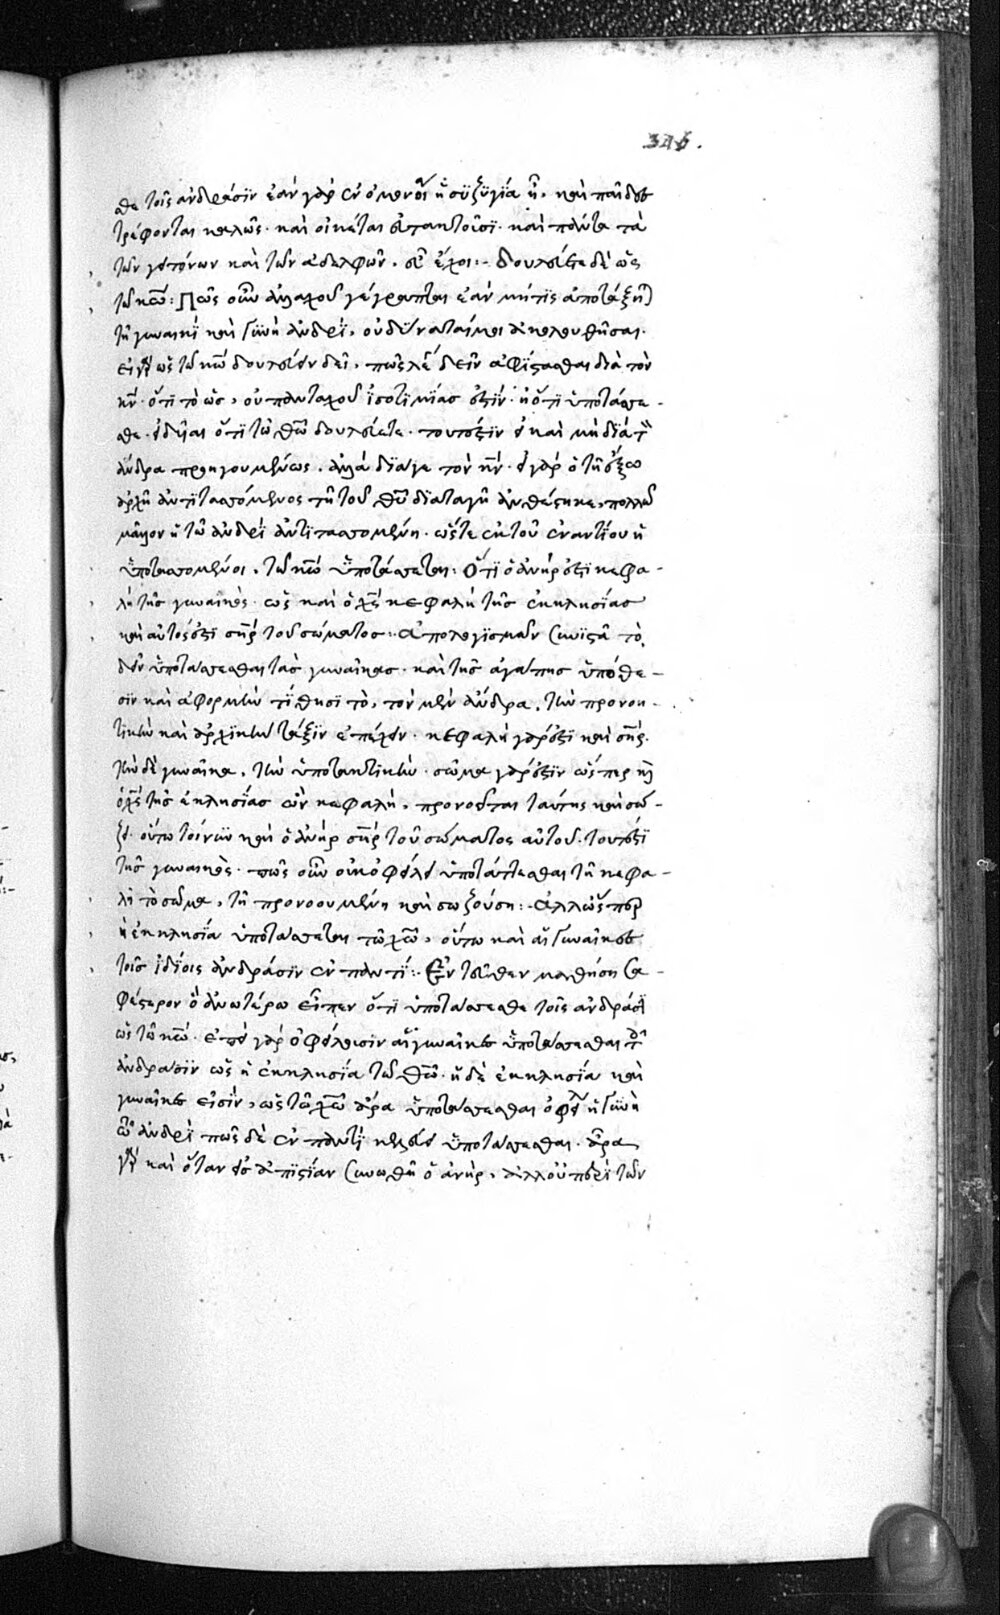 346.
σθε τοῖς ἀνδράσϊν ἐὰν γὰρ ἐν ὁμονοία ἡ συζυγία ἦ, καὶ παῖδες
τρέφονται καλῶς· καὶ οἰκέται εὐτακτοῦσϊ· καὶ πάντα τὰ
τῶν γειτόνων καὶ τῶν ἀδελφῶν. εὖ ἔχει:- δουλεύετε δὲ ὡς
τῶ κῶ: Πῶς οὖν ἀλλαχοῦ γέγραπται ἐὰν μήτϊς ἀποτάξηται
τῆ γυναικῒ καὶ γυνὴ ἀνδρῒ, οὐ δύναταί μοι ἀκολουθῆσαι.
εἰ γὰρ ὡς τῶ κῶ δουλεύειν δεῖ, πῶς λέγει δεῖν ἀφίστασθαι διὰ τὸν
κν· ὅτι τὸ ὡς, οὐ πανταχοῦ ἰσοτιμίας ἐστΐν· ἢ ὅτι ὑποτάσσε-
σθε. εἰδυῖαι ὅτι τῶ θῶ δουλεύετε. τουτέστϊν εἰ καὶ μὴ διὰ τὸν
ἄνδρα προηγουμένως. ἀλλὰ δϊά γε τὸν κν. εἰ γὰρ ὁ τῆ ἔξω
ἀρχῆ ἀντιτασσόμενος τῆ τοῦ θυ διαταγῆ ἀνθέστηκε, πολλῶ
μᾶλλον ἡ τῶ ἀνδρὶ ἀντιτασσομένη. ὥστε ἐκ τοῦ ἐναντίου ἡ
ὑποτασσομένη. τῶ κῶ ὑποτάσσεται: Ὅτι ὁ ἀνήρ ἐστι κεφα-
λὴ τῆς γυναικὸς· ὡς καὶ ὁ χς κεφαλὴ τῆς ἐκκλησίας
καὶ αὐτός ἐστι σηρ τοῦ σώματος: Ἀπολογϊσμὸν συνιστᾶ τὸ
δεῖν ὑποτάσσεσθαι τὰς γυναῖκας. καὶ τῆς ἀγάπης ὑπόθε-
σϊν καὶ ἀφορμὴν τίθησϊ τὸ, τὸν μὲν ἄνδρα. τὴν προνοη-
τικὴν καὶ ἀρχϊκὴν τάξϊν ἐπέχειν. κεφαλὴ γάρ ἐστι καὶ σηρ.
τὴν δὲ γυναῖκα. τὴν ὑποτακτικὴν. σῶμα γάρ ἐστϊν ὥσπερ καὶ
ὁ χς τῆς ἐκκλησίας ὢν κεφαλὴ. προνοεῖται ταύτης καὶ σώ-
ζει. οὕτω τοίνυν καὶ ὁ ἀνὴρ σηρ τοῦ σώματος αὐτοῦ. τουτέστι
τῆς γυναικὸς. πῶς οὖν οὐκ ὀφείλει ὑποτάττεσθαι τῆ κεφα-
λῆ τὸ σῶμα, τῆ προνοουμένη καὶ σωζούση:- Ἀλλ' ὥσπερ
ἡ ἐκκλησία ὑποτάσσεται τῶ χῶ, οὕτω καὶ αἱ γυναῖκες
τοῖς ἰδίοις ἀνδράσϊν ἐν παντί: Ἐντεῦθεν μανθήση σα-
φέστερον ὃ ἀνωτέρω εἶπεν ὅτι ὑποτάσσεσθε τοῖς ἀνδράσϊ
ὡς τῶ κῶ. ἐπεὶ γὰρ ὀφείλουσϊν αἱ γυναῖκες ὑποτάσσεσθαι τοῖς
ἀνδράσϊν ὡς ἡ ἐκκλησία τῶ θῶ. ἡ δὲ ἐκκλησία καὶ
γυναῖκες εἰσίν, ὡς τῶ χῶ ἄρα ὑποτάσσεσθαι ὀφείλει ἡ γυνὴ
τῶ ἀνδρΐ πῶς δὲ ἐν παντΐ κελεύει ὑποτάσσεσθαι. ἆρα
γὰρ καὶ ὅταν εἰς ἀπϊστίαν συνωθῆ ὁ ἀνὴρ, ἀλλ' οὐ περῒ τῶν